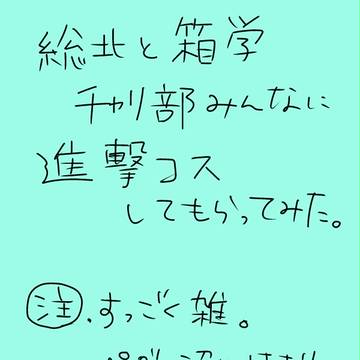 総北と箱学
チャリ部みんなに
進撃コス
してもらってみた。
注.すっごく雑。